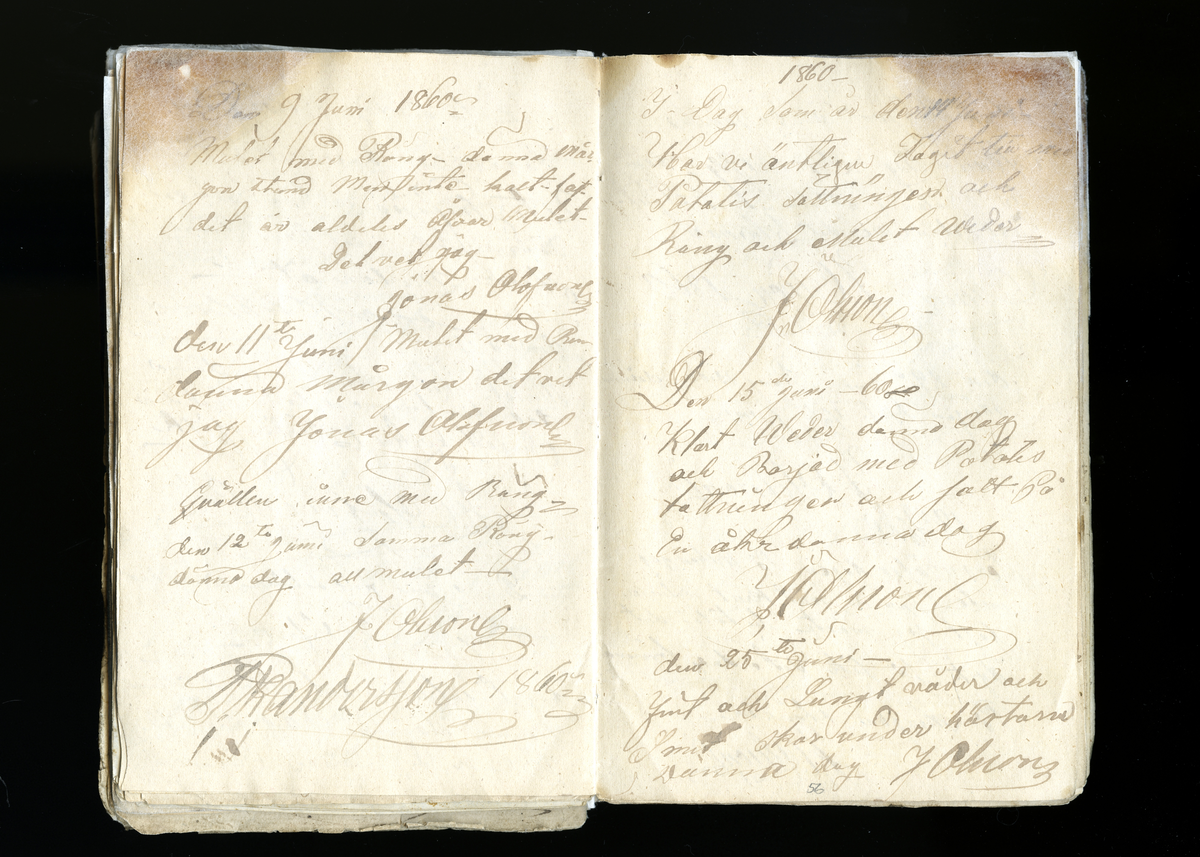 Den 9 Juni 1860
Mulet med Räng danna Mår-
gon stund Men inte halt
det är aldeles Öfver Mulet
Det vet jag
Jonas Olofsson
den 11te Juni Mulet med Rän
danna Mårgon det vet
jag Jonas Olofsson
Qvällen inne med Räng
den 12te Juni Samma Räng
danna dag all mulet
J Olsson
Andersson 1860
1860
I Dag Som är den Juni
Har vi äntligen Tagit
Potatis sättningen och
Räng och Mulet Weder
J Olsson
Den 15de Juni 60
Klart Weder danna dag
och Börjad med Potatis
sattningen och satt På
En åkr danna dag
J Olsson
den 25te Juni
fint och Lungt väder och
skor under hästarn
danna dag J Olsson
56